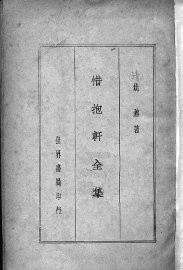 清 姚鼐著
惜抱軒全集
世界書局印行